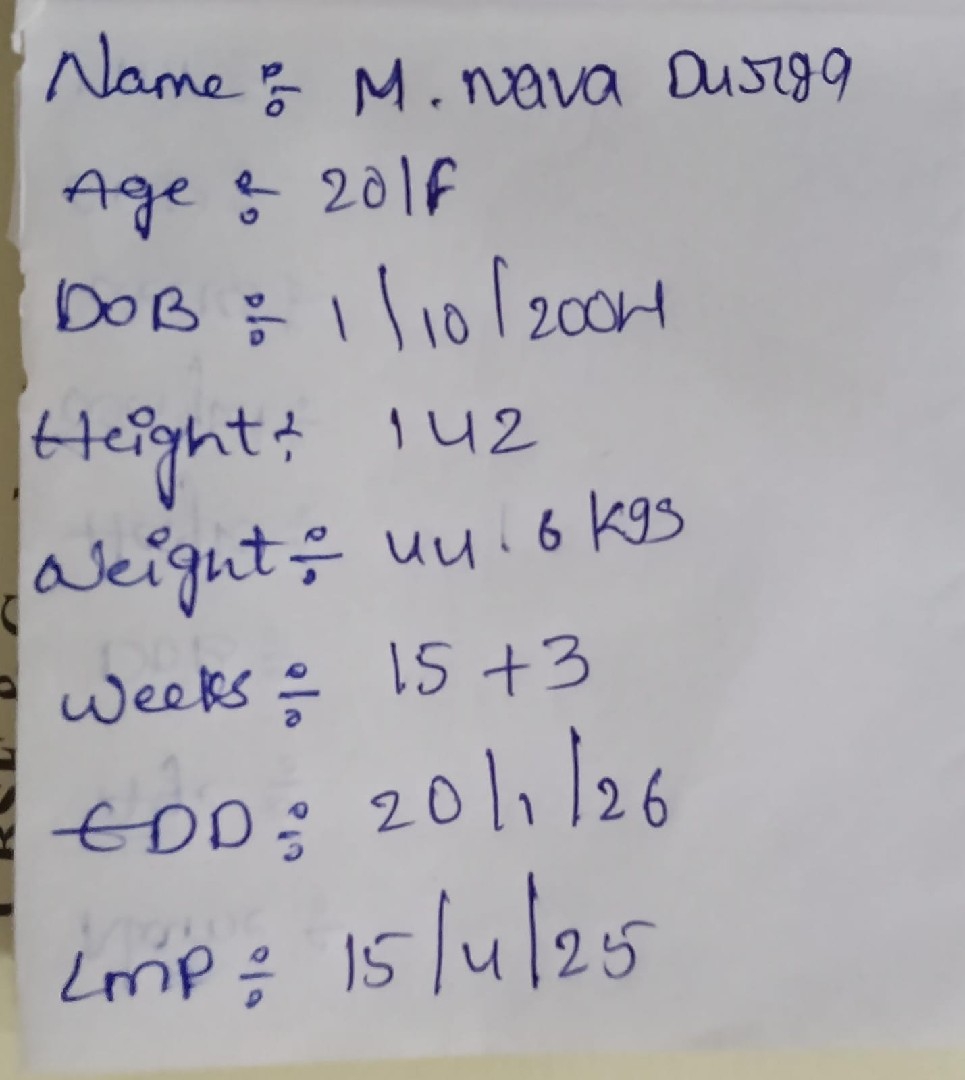 Name ÷ M. Nava Durga
Age ÷ 20/F
DOB ÷ 1/10/2004
Height ÷ 142
Weight ÷ 44.6 kgs
Weeks ÷ 15 + 3
EDD ÷ 20/1/26
LMP ÷ 15/4/25